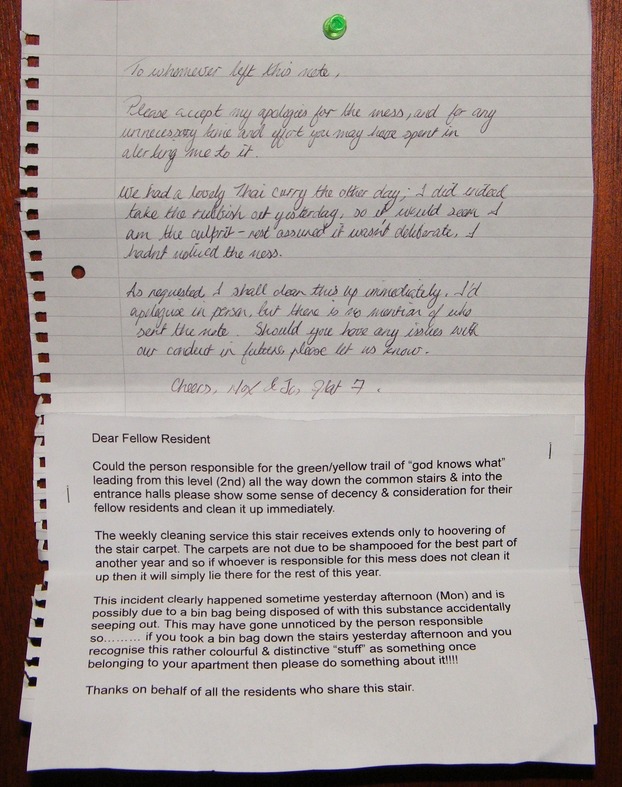 To whomever left this note,
Please accept my apologies for the mess, and for any
unnecessary time and effort you may have spent in
alerting me to it.
We had a lovely Thai curry the other day; I did indeed
take the rubbish out yesterday, so it would seem I
am the culprit - rest assured it wasn't deliberate, I
hadn't noticed the mess.
As requested, I shall clean this up immediately. I'd
apologise in person, but there is no mention of who
sent the note. Should you have any issues with
our conduct in future, please let us know.
Cheers, & Flat 7.
Dear Fellow Resident
Could the person responsible for the green/yellow trail of "god knows what"
leading from this level (2nd) all the way down the common stairs & into the
entrance halls please show some sense of decency & consideration for their
fellow residents and clean it up immediately.
The weekly cleaning service this stair receives extends only to hoovering of
the stair carpet. The carpets are not due to be shampooed for the best part of
another year and so if whoever is responsible for this mess does not clean it
up then it will simply lie there for the rest of this year.
This incident clearly happened sometime yesterday afternoon (Mon) and is
possibly due to a bin bag being disposed of with this substance accidentally
seeping out. This may have gone unnoticed by the person responsible
so……… if you took a bin bag down the stairs yesterday afternoon and you
recognise this rather colourful & distinctive "stuff" as something once
belonging to your apartment then please do something about it!!!!
Thanks on behalf of all the residents who share this stair.